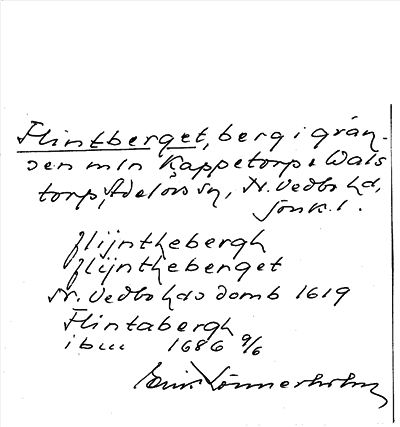 Flintberget, berg i grän-
sen mln Kappetorp o Wals
torp, Adelövs sn, N. Vedbo hd,
Jönk. l.
flijnthebergh
flijntheberget
N. Vedbo hds domb 1619
Flintabergh
ib... 1686 9/6
Einar Lönnerholm